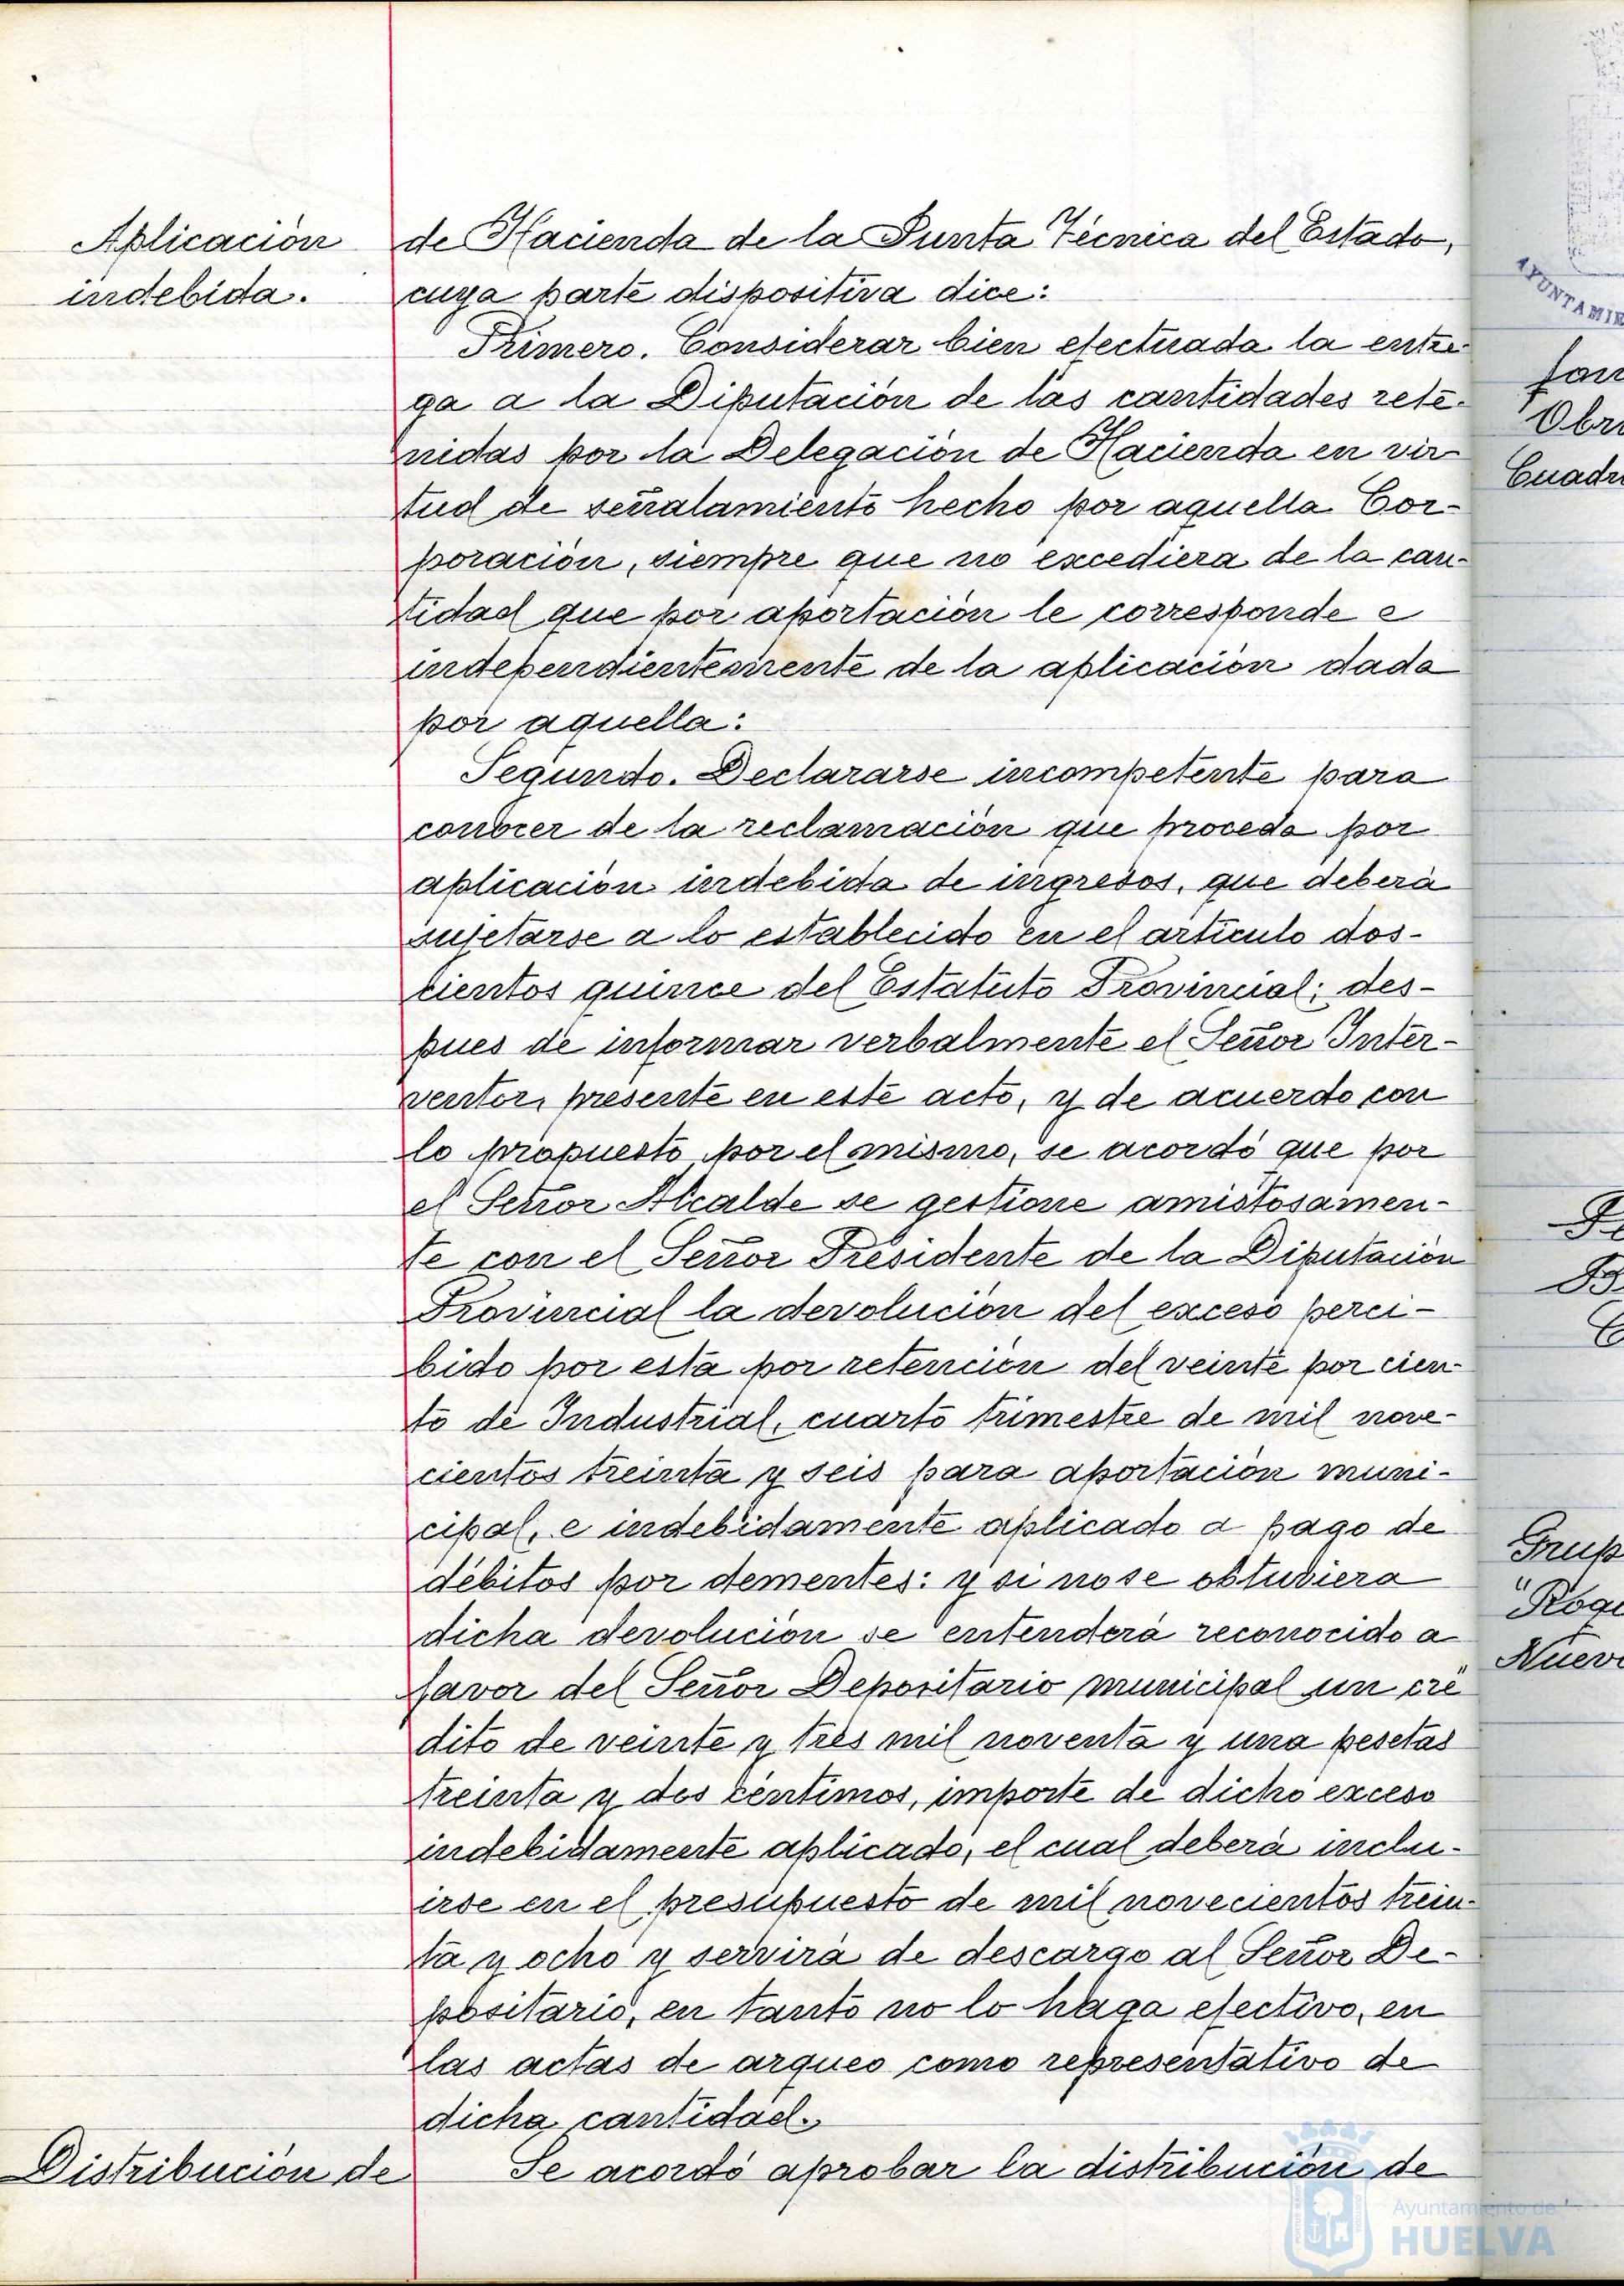 Aplicación
indebida.
de Hacienda de la Junta Técnica del Estado,
cuya parte dispositiva dice:
Primero. Considerar bien efectuada la entre-
ga a la Diputación de las cantidades rete-
nidas por la Delegación de Hacienda en vir-
tud de señalamiento hecho por aquella Cor-
poración, siempre que no excediera de la can-
tidad que por aportación le corresponde e
independientemente de la aplicación dada
por aquella:
Segundo. Declararse incompetente para
conocer de la reclamación que proceda por
aplicación indebida de ingresos, que deberá
sujetarse a lo establecido en el artículo dos-
cientos quince del Estatuto Provincial; des-
pues de informar verbalmente el Señor Inter-
ventor, presente en este acto, y de acuerdo con
lo propuesto por el mismo, se acordó que por
el Señor Alcalde se gestione amistosamen-
te con el Señor Presidente de la Diputación
Provincial la devolución del exceso perci-
bido por esta por retención del veinte por cien-
to de Industrial, cuarto trimestre de mil nove-
cientos treinta y seis para aportación muni-
cipal, e indebidamente aplicado a pago de
débitos por dementes: y si no se obtuviera
dicha devolución se entenderá reconocido a
favor del Señor Depositario municipal un cré"
dito de veinte y tres mil noventa y una pesetas
treinta y dos céntimos, importe de dicho exceso
indebidamente aplicado, el cual deberá inclu-
irse en el presupuesto de mil novecientos trein-
ta y ocho y servirá de descargo al Señor De-
positario, en tanto no lo haga efectivo, en
las actas de arqueo como representativo de
dicha cantidad.
Distribución de
Se acordó aprobar la distribución de
AYUNTAMIE
Obr
Cuadr
Grup
"Roqu
Nuev
Ayuntamiento de
HUELVA